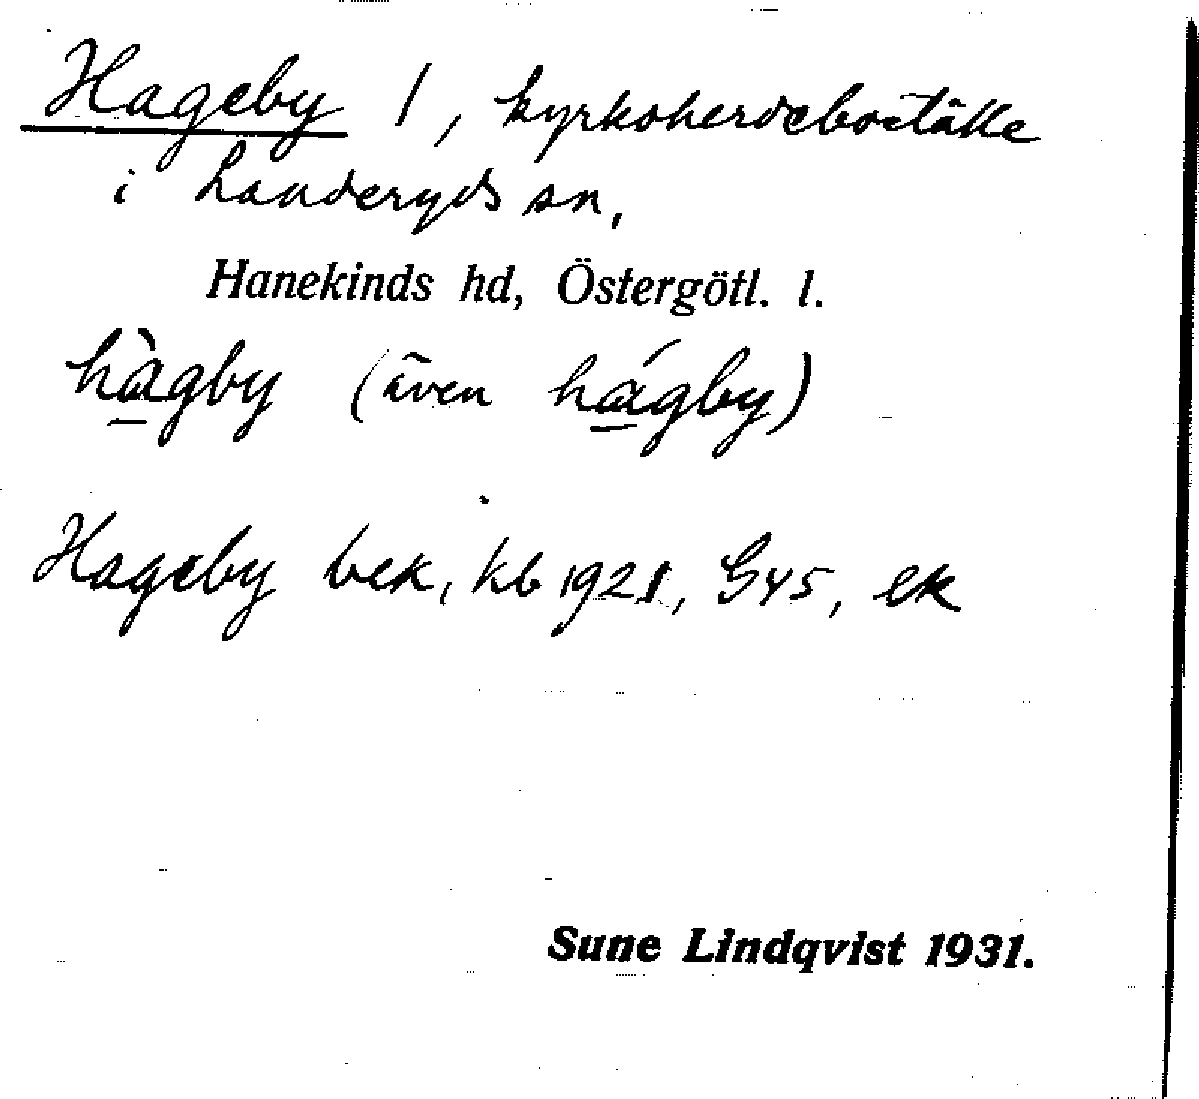 Hageby 1, kyrkoherdeboställe
i Landeryds sn,
Hanekinds hd, Östergötl. l.
hàgby (även hágby)
Hageby bek, kb 1921, G45, ek
Sune Lindqvist 1931.